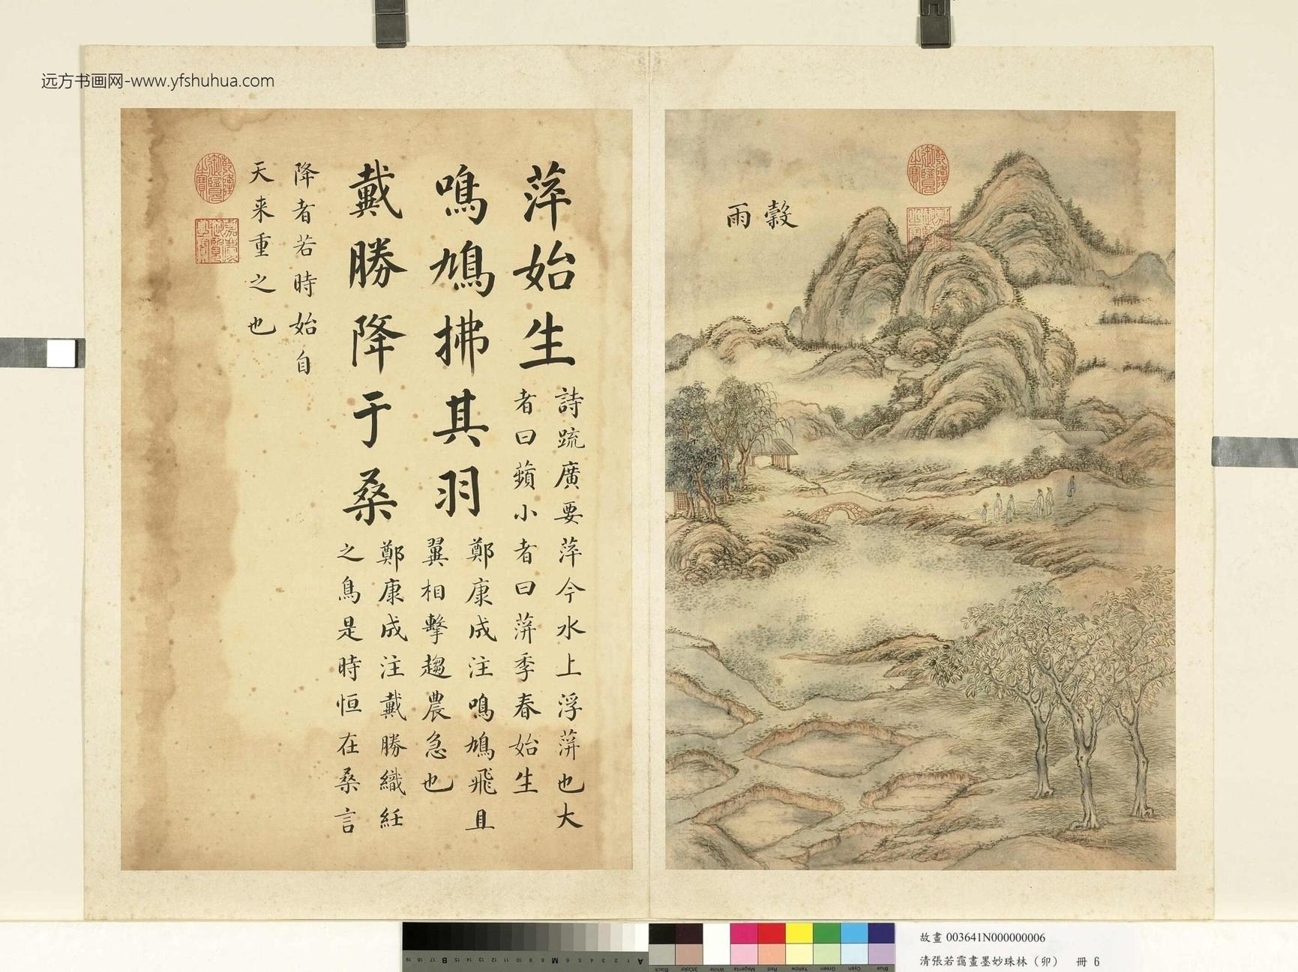 远方书画网-www.yfshuhua.com
穀雨
萍始生
詩疏廣要萍今水上浮萍也大
者曰蘋小者曰萍季春始生
鳴鳩拂其羽
鄭康成注鳴鳩飛且
翼相擊趨農急也
戴勝降于桑
鄭康成注戴勝織紝
之鳥是時恒在桑言
降者若時始自
天来重之也
故畫 003641N000000006
清張若靄畫墨妙珠林（卯） 冊 6